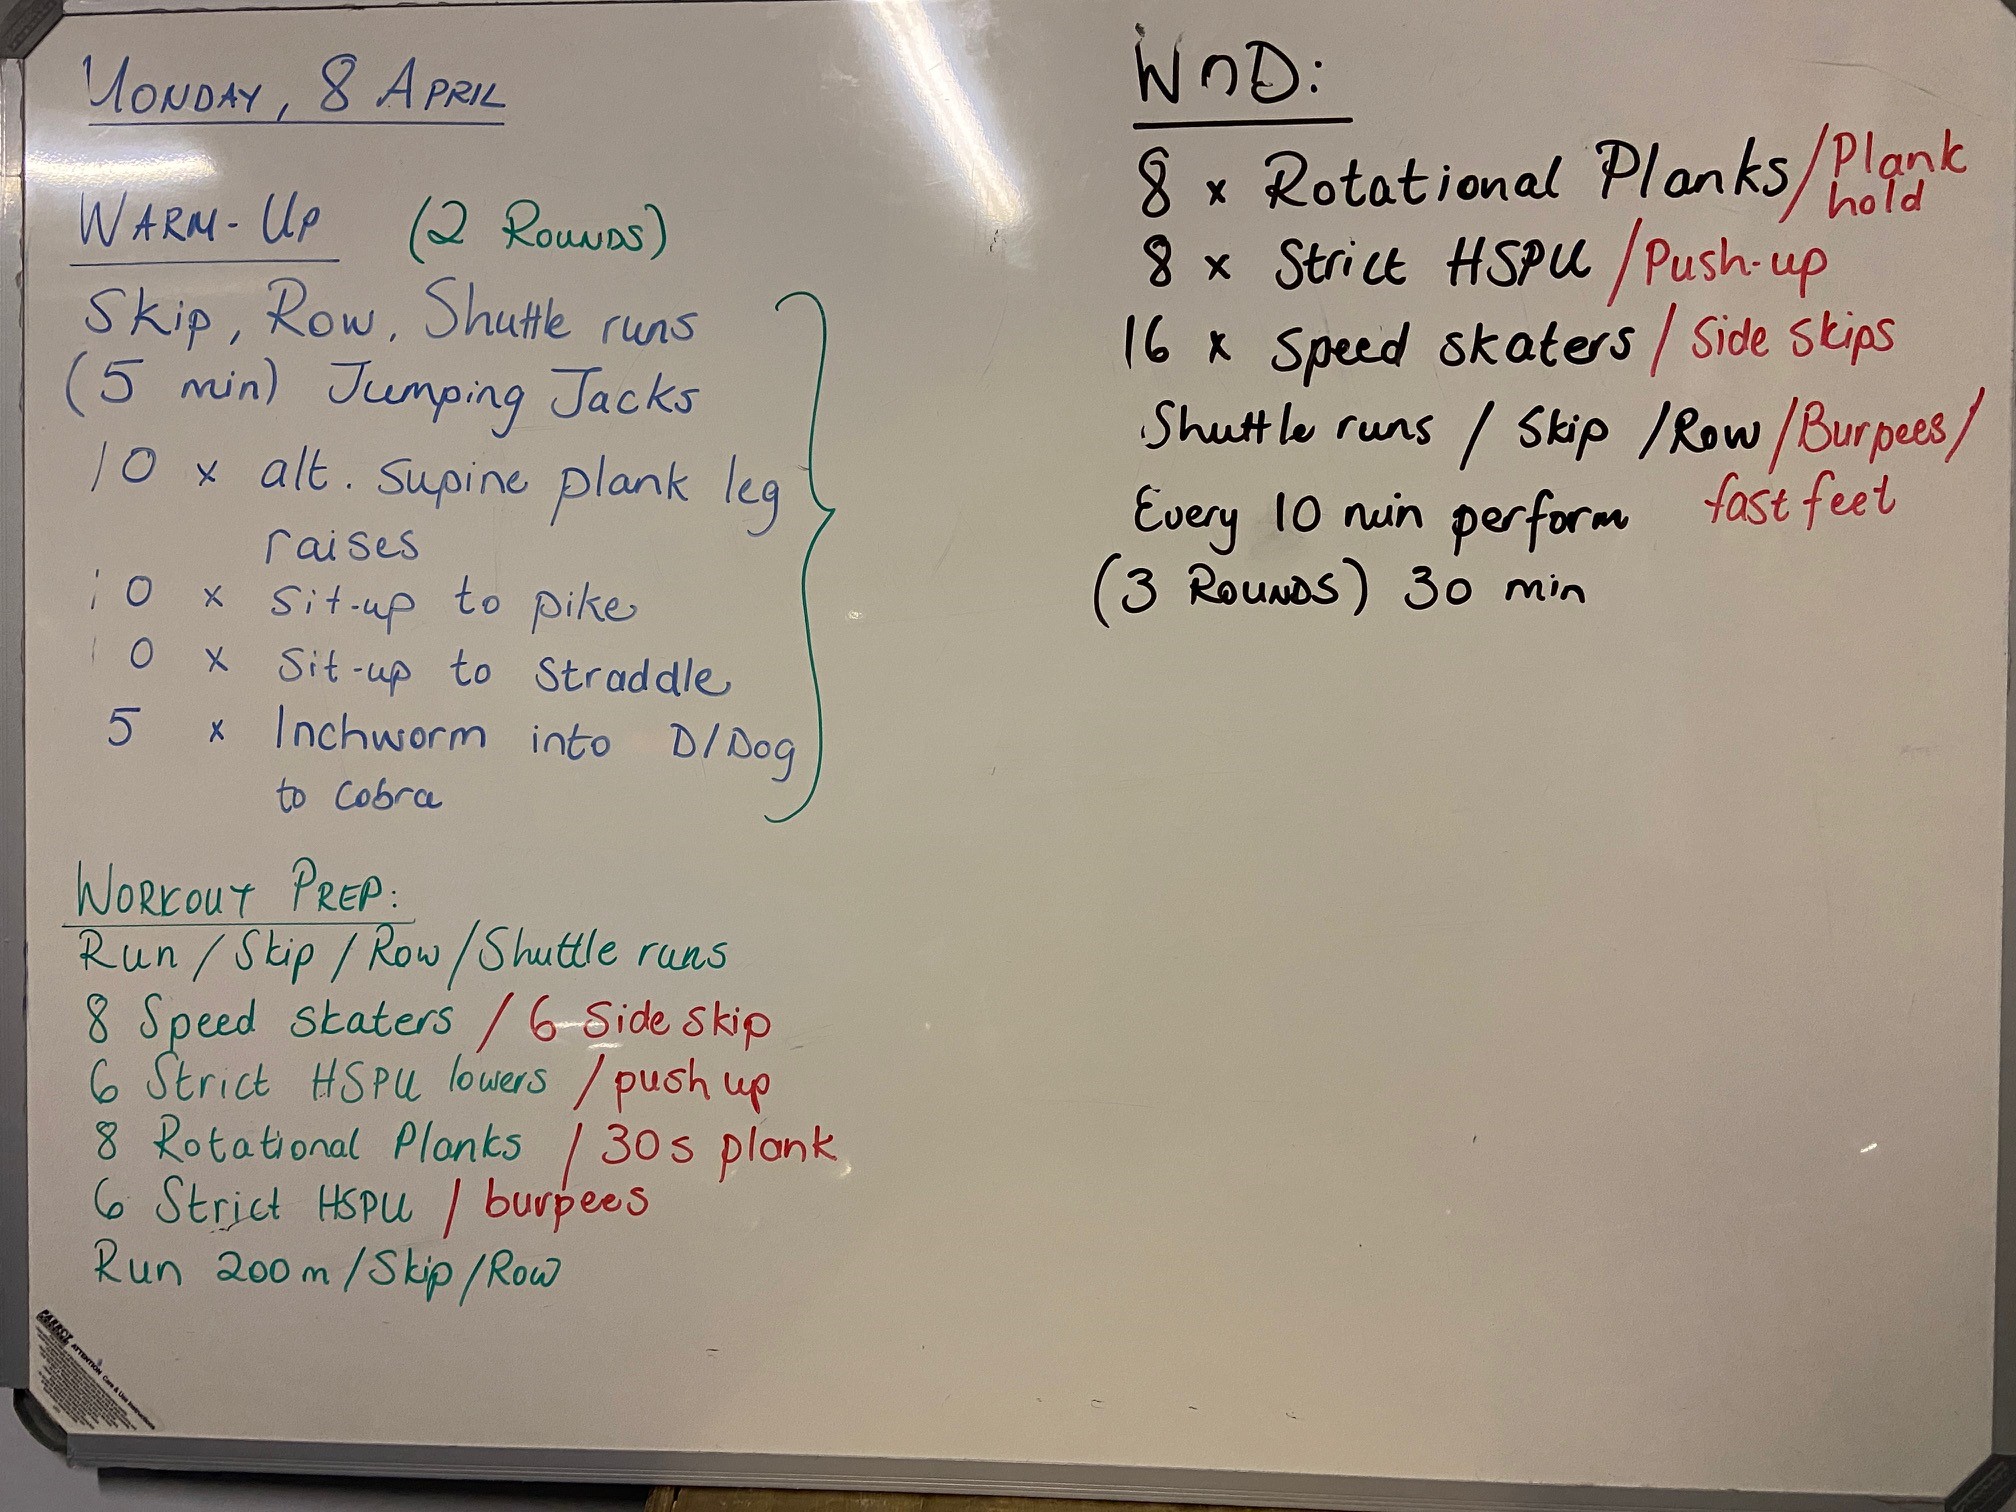 MONDAY, 8 APRIL
WARM-UP (2 ROUNDS)
Skip, Row, Shuttle runs
(5 min) Jumping Jacks
10 x alt. supine plank leg
raises
10 x Sit-up to pike
10 x Sit-up to Straddle
5 x Inchworm into D/Dog
to cobra
WORKOUT PREP:
Run / Skip / Row / Shuttle runs
8 Speed skaters / 6 Side skip
6 Strict HSPU lowers / push up
8 Rotational Planks / 30s plank
6 Strict HSPU / burpees
Run 200m / Skip / Row
WOD:
8 x Rotational Planks / Plank
hold
8 x Strict HSPU / Push-up
16 x Speed skaters / Side skips
Shuttle runs / Skip / Row / Burpees /
fast feet
Every 10 min perform
(3 ROUNDS) 30 min
PARROT
ATTENTION Care & Use Instructions